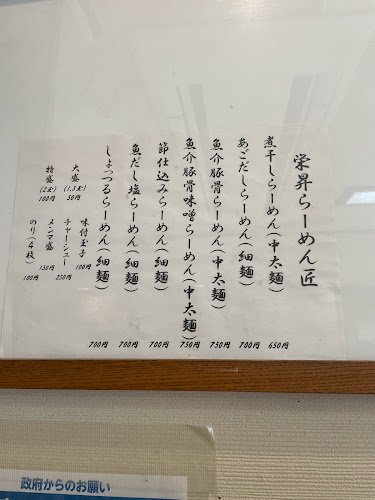 栄昇らーめん匠
煮干しらーめん(中太麺) 650円
あごだしらーめん(細麺) 700円
魚介豚骨らーめん(中太麺) 750円
魚介豚骨味噌らーめん(中太麺) 750円
節仕込みらーめん(細麺) 700円
魚だし塩らーめん(細麺) 700円
しょっつるらーめん(細麺) 700円
大盛(1.5玉) 50円
特盛(2玉) 100円
味付玉子 100円
チャーシュー 250円
メンマ盛 150円
のり(4枚) 100円
政府からのお願い